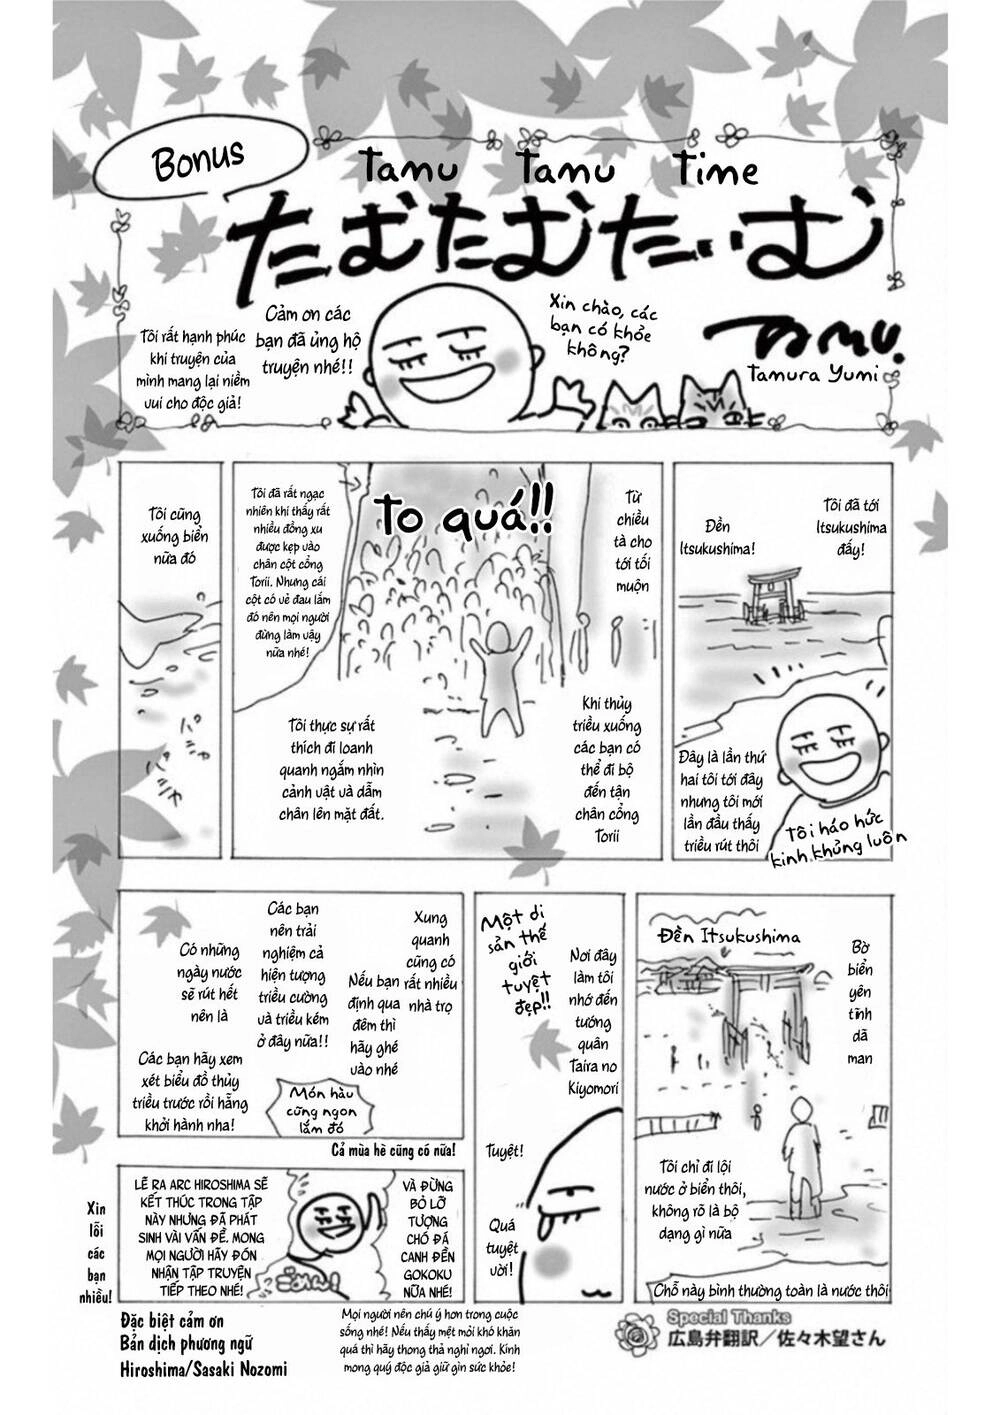 Bonus
Tamu Tamu Time
たむたむたいむ
Xin chào, các
bạn có khỏe
không?
Cảm ơn các
bạn đã ủng hộ
truyện nhé!!
Tôi rất hạnh phúc
khi truyện của
mình mang lại niềm
vui cho độc giả!
TAMU.
Tamura Yumi
Tôi đã tới
Itsukushima
đấy!
Đền
Itsukushima!
Đây là lần thứ
hai tôi tới đây
nhưng tôi mới
lần đầu thấy
triều rút thôi
Tôi háo hức
kinh khủng luôn
Từ
chiều
tà cho
tới tối
muộn
To quá!!
Tôi đã rất ngạc
nhiên khi thấy rất
nhiều đồng xu
được kẹp vào
chân cột cổng
Torii. Nhưng cái
cột có vẻ đau lắm
đó nên mọi người
đừng làm vậy
nữa nhé!
Khi thủy
triều xuống
các bạn có
thể đi bộ
đến tận
chân cổng
Torii
Tôi thực sự rất
thích đi loanh
quanh ngắm nhìn
cảnh vật và dẫm
chân lên mặt đất.
Tôi cũng
xuống biển
nữa đó
パシャ
パシャ
Đền Itsukushima
Bờ
biển
yên
tĩnh
dã
man
Tôi chỉ đi lội
nước ở biển thôi,
không rõ là bộ
dạng gì nữa
Chỗ này bình thường toàn là nước thôi
Một di
sản thế
giới
tuyệt
đẹp!!
Nơi đây
làm tôi
nhớ đến
tướng
quân
Taira no
Kiyomori
Tuyệt!
Quá
tuyệt
vời!
Xung
quanh
cũng có
rất nhiều
nhà trọ
Nếu bạn
định qua
đêm thì
hãy ghé
vào nhé
Các bạn
nên trải
nghiệm cả
hiện tượng
triều cường
và triều kém
ở đây nữa!!
Có những
ngày nước
sẽ rút hết
nên là
Các bạn hãy xem
xét biểu đồ thủy
triều trước rồi hẵng
khởi hành nha!
Món hàu
cũng ngon
lắm đó
Cả mùa hè cũng có nữa!
VÀ ĐỪNG
BỎ LỠ
TƯỢNG
CHÓ ĐÁ
CANH ĐỀN
GOKOKU
NỮA NHÉ!
LẼ RA ARC HIROSHIMA SẼ
KẾT THÚC TRONG TẬP
NÀY NHƯNG ĐÃ PHÁT
SINH VÀI VẤN ĐỀ. MONG
MỌI NGƯỜI HÃY ĐÓN
NHẬN TẬP TRUYỆN
TIẾP THEO NHÉ!
ごめん!
Xin
lỗi
các
bạn
nhiều!
Đặc biệt cảm ơn
Bản dịch phương ngữ
Hiroshima/Sasaki Nozomi
Mọi người nên chú ý hơn trong cuộc
sống nhé! Nếu thấy mệt mỏi khó khăn
quá thì hãy thong thả nghỉ ngơi. Kính
mong quý độc giả giữ gìn sức khỏe!
Special Thanks
広島弁翻訳／佐々木望さん